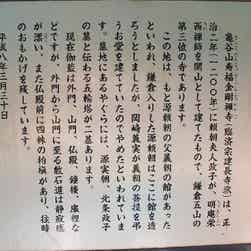 亀谷山寿福金剛禅寺(臨済宗建長寺派)は、正
治二年(一二〇〇年)に頼朝夫人政子が、明庵栄
西禅師を開山として建てたもので、鎌倉五山の
第三位の寺であります。
この地は、もと源頼朝の父義朝の館があった
といわれ、鎌倉入りした源頼朝はここに館を造
ろうとしましたが、岡崎義実が義朝の菩提を弔
うお堂を建てていたのでやめたといわれていま
す。墓地にあるやぐらには、源実朝、北条政子
の墓と伝わる五輪塔が二基あります。
現在伽藍は外門、山門、仏殿、鐘楼、庫裡な
どですが、外門から山門に至る敷石道は静寂感
が漂い、また仏殿前に四株の柏槇があり、往時
のおもかげを残しています。
平成八年三月三十日